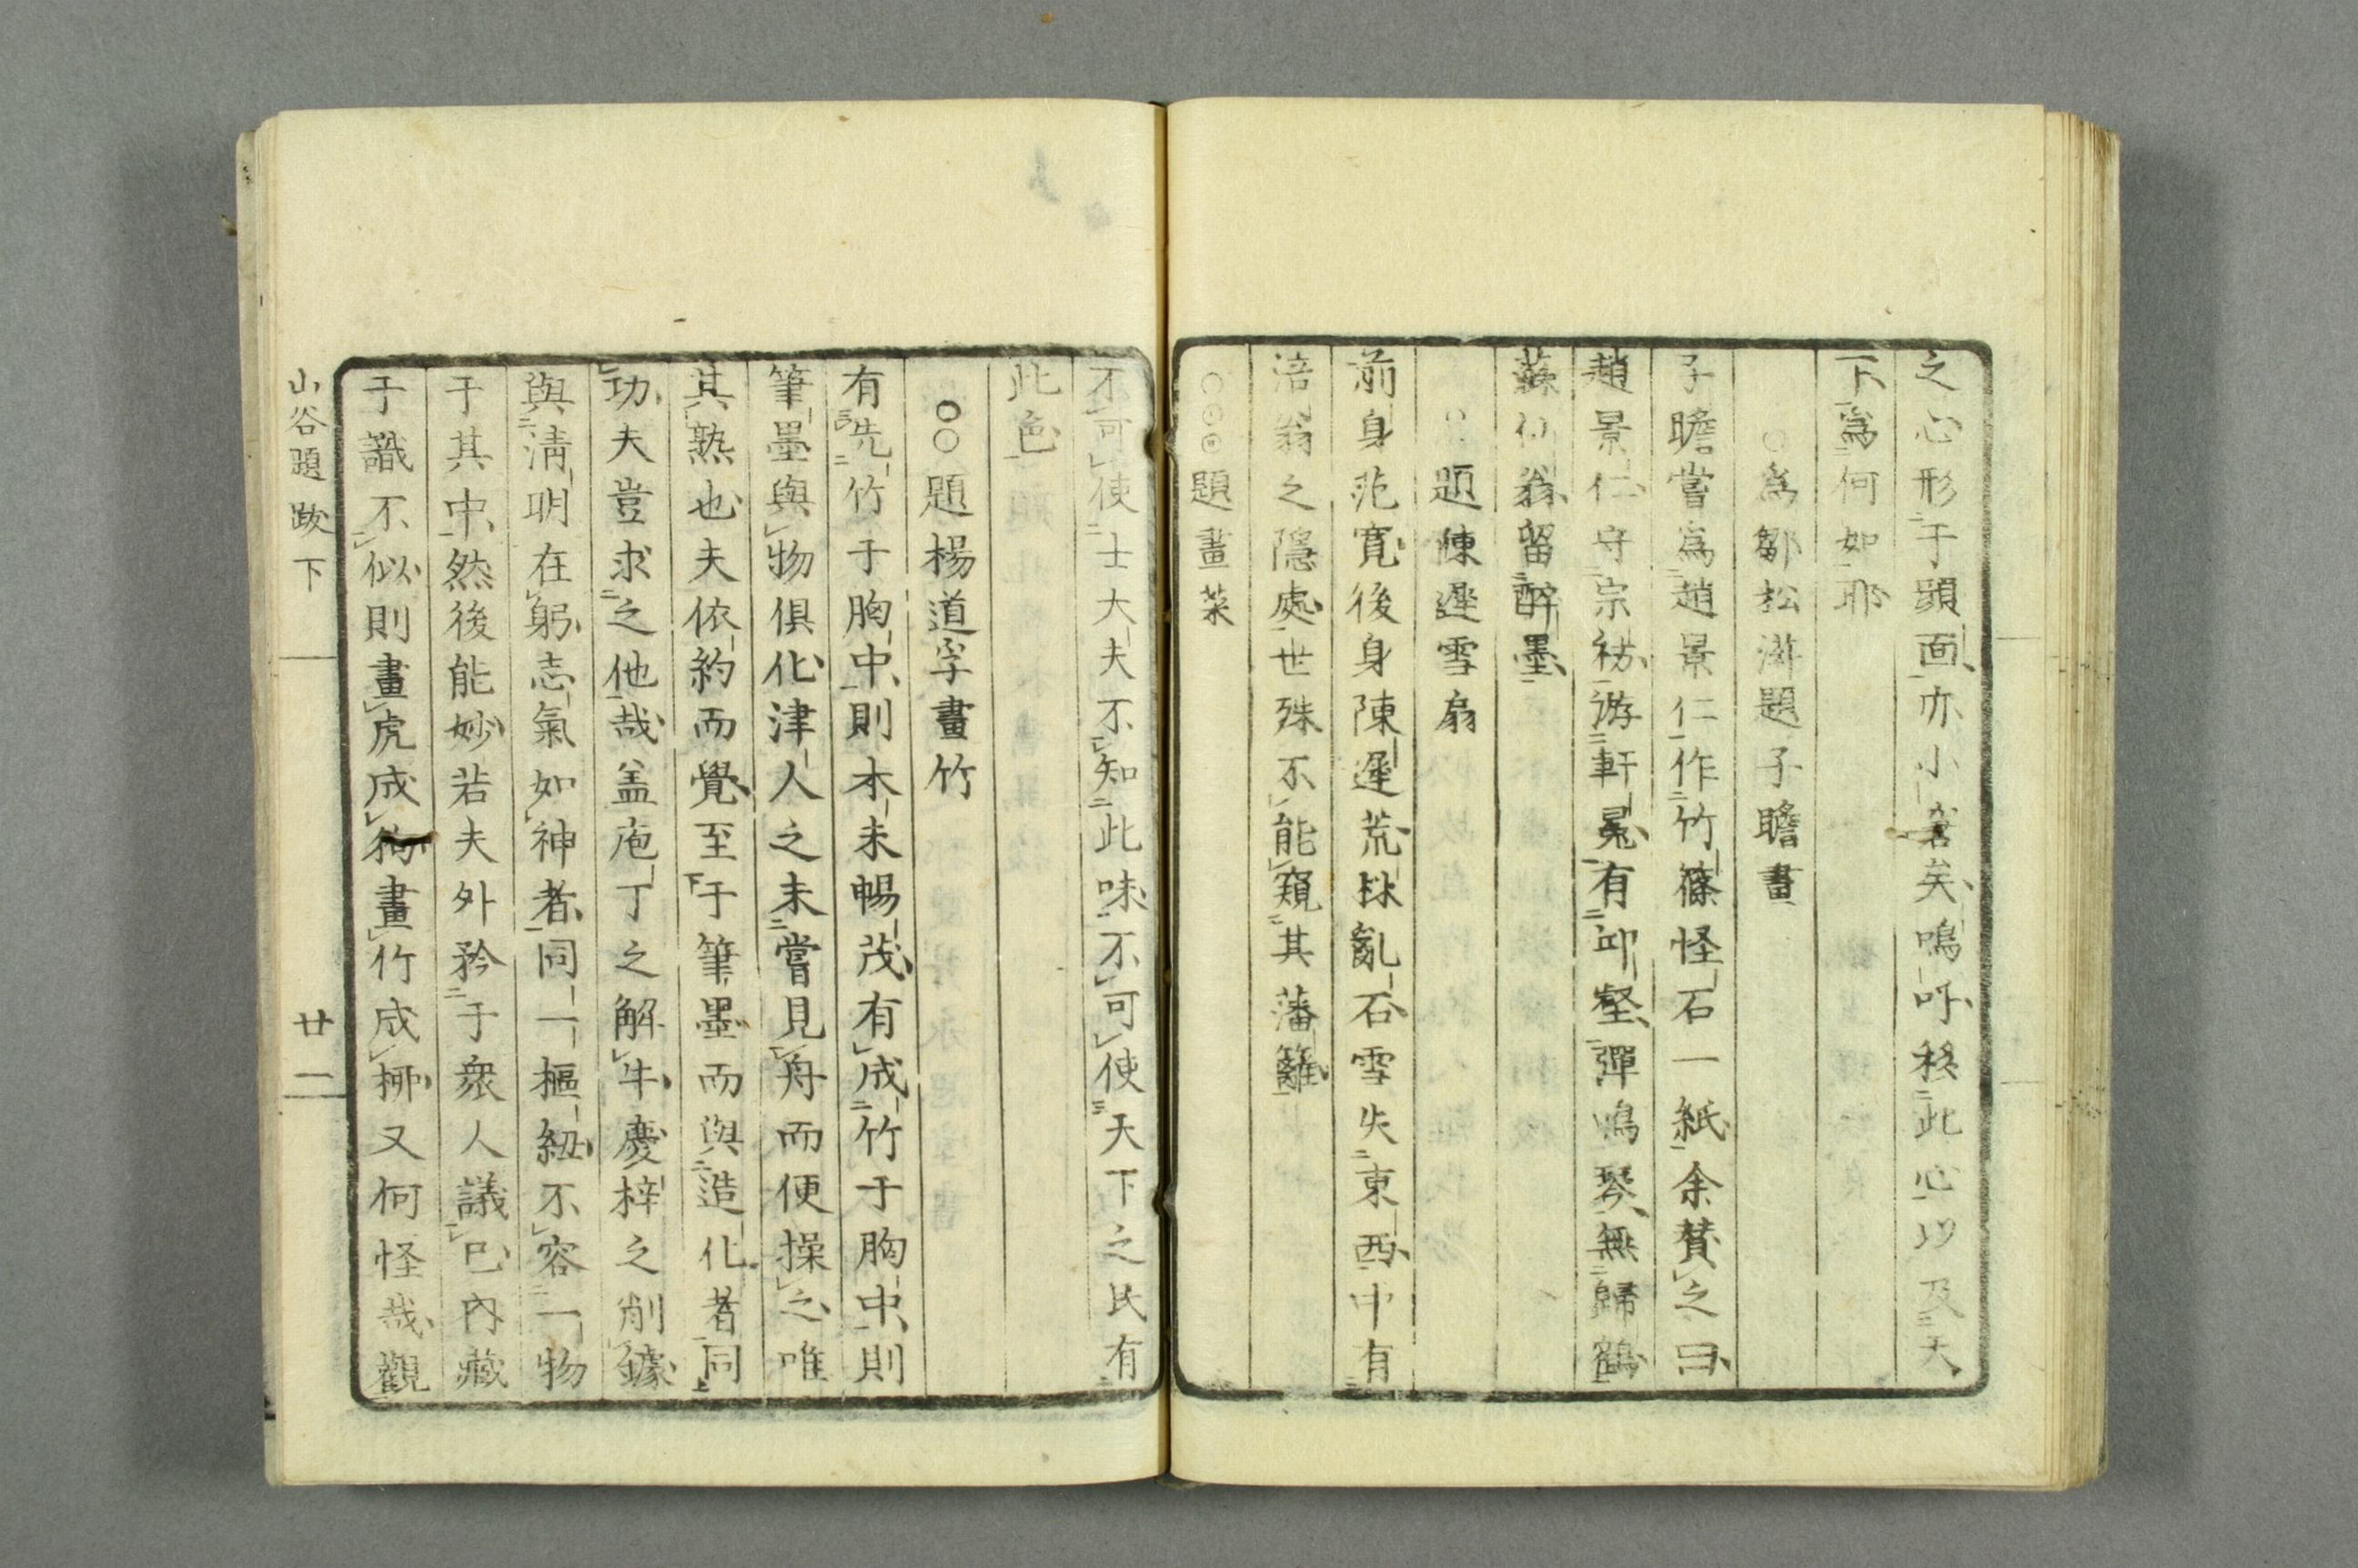 之心形于頭面亦小窘矣嗚呼移此心以及天
下為何如耶
○為鄒松滋題子瞻畫
子瞻嘗為趙景仁作竹篠怪石一紙余賛之曰
趙景仁守宗祊游軒冕有邱壑彈鳴琴無歸鶴
蘇仙翁留醉墨
題陳遲雪扇
前身范寛後身陳遲荒林亂石雪失東西中有
涪翁之隱處世殊不能窺其藩籬
○○○題畫菜
不可使士大夫不知此味不可使天下之民有
此色
○○題楊道孚畫竹
有先竹于胸中則本末暢茂有成竹于胸中則
筆墨與物俱化津人之未嘗見舟而便操之唯
其熟也夫依約而覺至于筆墨而與造化者同
功夫豈求之他哉盖庖丁之解牛慶梓之削鐻
與清明在躬志氣如神者同一樞紐不容一物
于其中然後能妙若夫外矜于衆人議已内藏
于識不似則畫虎成狗畫竹成栁又何怪哉觀
山谷題跋下
廿二